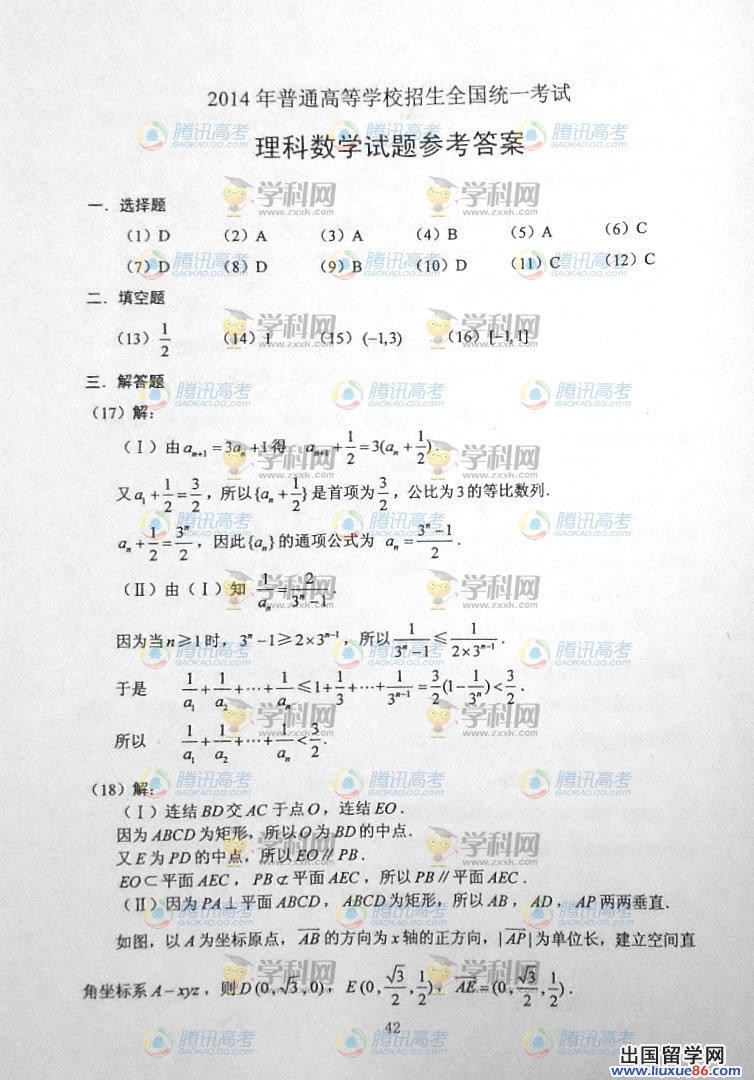 2014 年普通高等学校招生全国统一考试
理科数学试题参考答案
一．选择题
（1）D （2）A （3）A （4）B （5）A （6）C
（7）D （8）D （9）B （10）D （11）C （12）C
二．填空题
（13）1/2 （14）1 （15）(−1,3) （16）[−1,1]
三．解答题
（17）解：
（Ⅰ）由 aₙ₊₁ = 3aₙ + 1 得 aₙ₊₁ + 1/2 = 3(aₙ + 1/2).
又 a₁ + 1/2 = 3/2，所以{aₙ + 1/2}是首项为 3/2，公比为 3 的等比数列.
aₙ + 1/2 = 3ⁿ/2，因此{aₙ}的通项公式为 aₙ = (3ⁿ−1)/2.
（Ⅱ）由（Ⅰ）知 1/aₙ = 2/(3ⁿ−1).
因为当 n≥1 时，3ⁿ −1≥2×3ⁿ⁻¹，所以 1/(3ⁿ−1) ≤ 1/(2×3ⁿ⁻¹).
于是 1/a₁ + 1/a₂ + ⋯ + 1/aₙ ≤ 1 + 1/3 + ⋯ + 1/3ⁿ⁻¹ = 3/2(1 − 1/3ⁿ) < 3/2.
所以 1/a₁ + 1/a₂ + ⋯ + 1/aₙ < 3/2.
（18）解：
（Ⅰ）连结 BD 交 AC 于点 O，连结 EO．
因为 ABCD 为矩形，所以 O 为 BD 的中点．
又 E 为 PD 的中点，所以 EO∥PB．
EO⊂平面 AEC，PB⊄平面 AEC，所以 PB∥平面 AEC．
（Ⅱ）因为 PA⊥平面 ABCD，ABCD 为矩形，所以 AB，AD，AP 两两垂直．
如图，以 A 为坐标原点，AB 的方向为 x 轴的正方向，|AP| 为单位长，建立空间直
角坐标系 A−xyz，则 D(0,√3,0)，E(0,√3/2,1/2)，AE=(0,√3/2,1/2)．
42
腾讯高考
GAOKAO.QQ.COM
学科网
www.zxxk.com
出国留学网
www.liuxue86.com